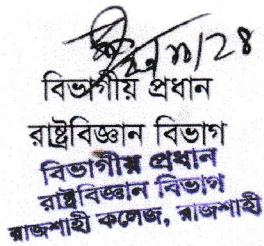 বিভাগীয় প্রধান
রাষ্ট্রবিজ্ঞান বিভাগ
বিভাগীয় প্রধান
রাষ্ট্রবিজ্ঞান বিভাগ
রাজশাহী কলেজ, রাজশাহী